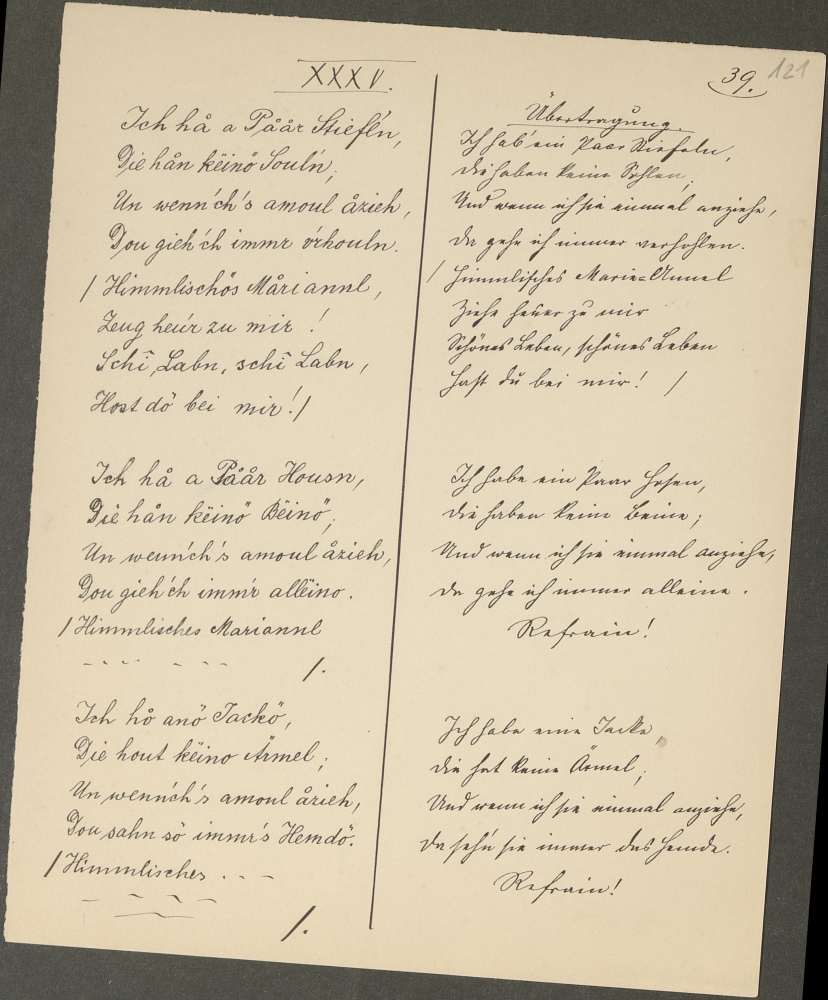 XXXV.
Ich hå a Påår Stiefl'n,
Die hån këinö Soul'n;
Un wenn'ch's amoul åzieh,
Dou gieh'ch immr v'rhouln.
/ Himmlischös Måriannl,
Zeug heu'r zu mir!
Schi Labn, schi Labn,
Host dö bei mir! /
Ich hå a Påår Housn,
Die hån këinö Bëinö;
Un wenn'ch's amoul åzieh,
Dou gieh'ch imm'r allëino.
/ Himmlisches Mariannl
/.
Ich hå anö Jackö,
Die hout këino Ärmel;
Un wenn'ch's amoul åzieh,
Dou sahn sö immr's Hemdö.
/ Himmlisches . - -
/.
39. 121
Übertragung.
Ich hab' ein Paar Stiefeln,
Die haben keine Sohlen;
Und wenn ich sie einmal anziehe,
Da gehe ich immer verhohlen.
/ Himmlisches Marie-Annel
Ziehe heuer zu mir
Schönes Leben, schönes Leben
Hast du bei mir! /
Ich habe ein Paar Hosen,
Die haben keine Beine;
Und wenn ich sie einmal anziehe,
Da gehe ich immer alleine.
Refrain!
Ich habe eine Jacke,
Die hat keine Ärmel;
Und wenn ich sie einmal anziehe,
Da seh'n sie immer das Hemde.
Refrain!